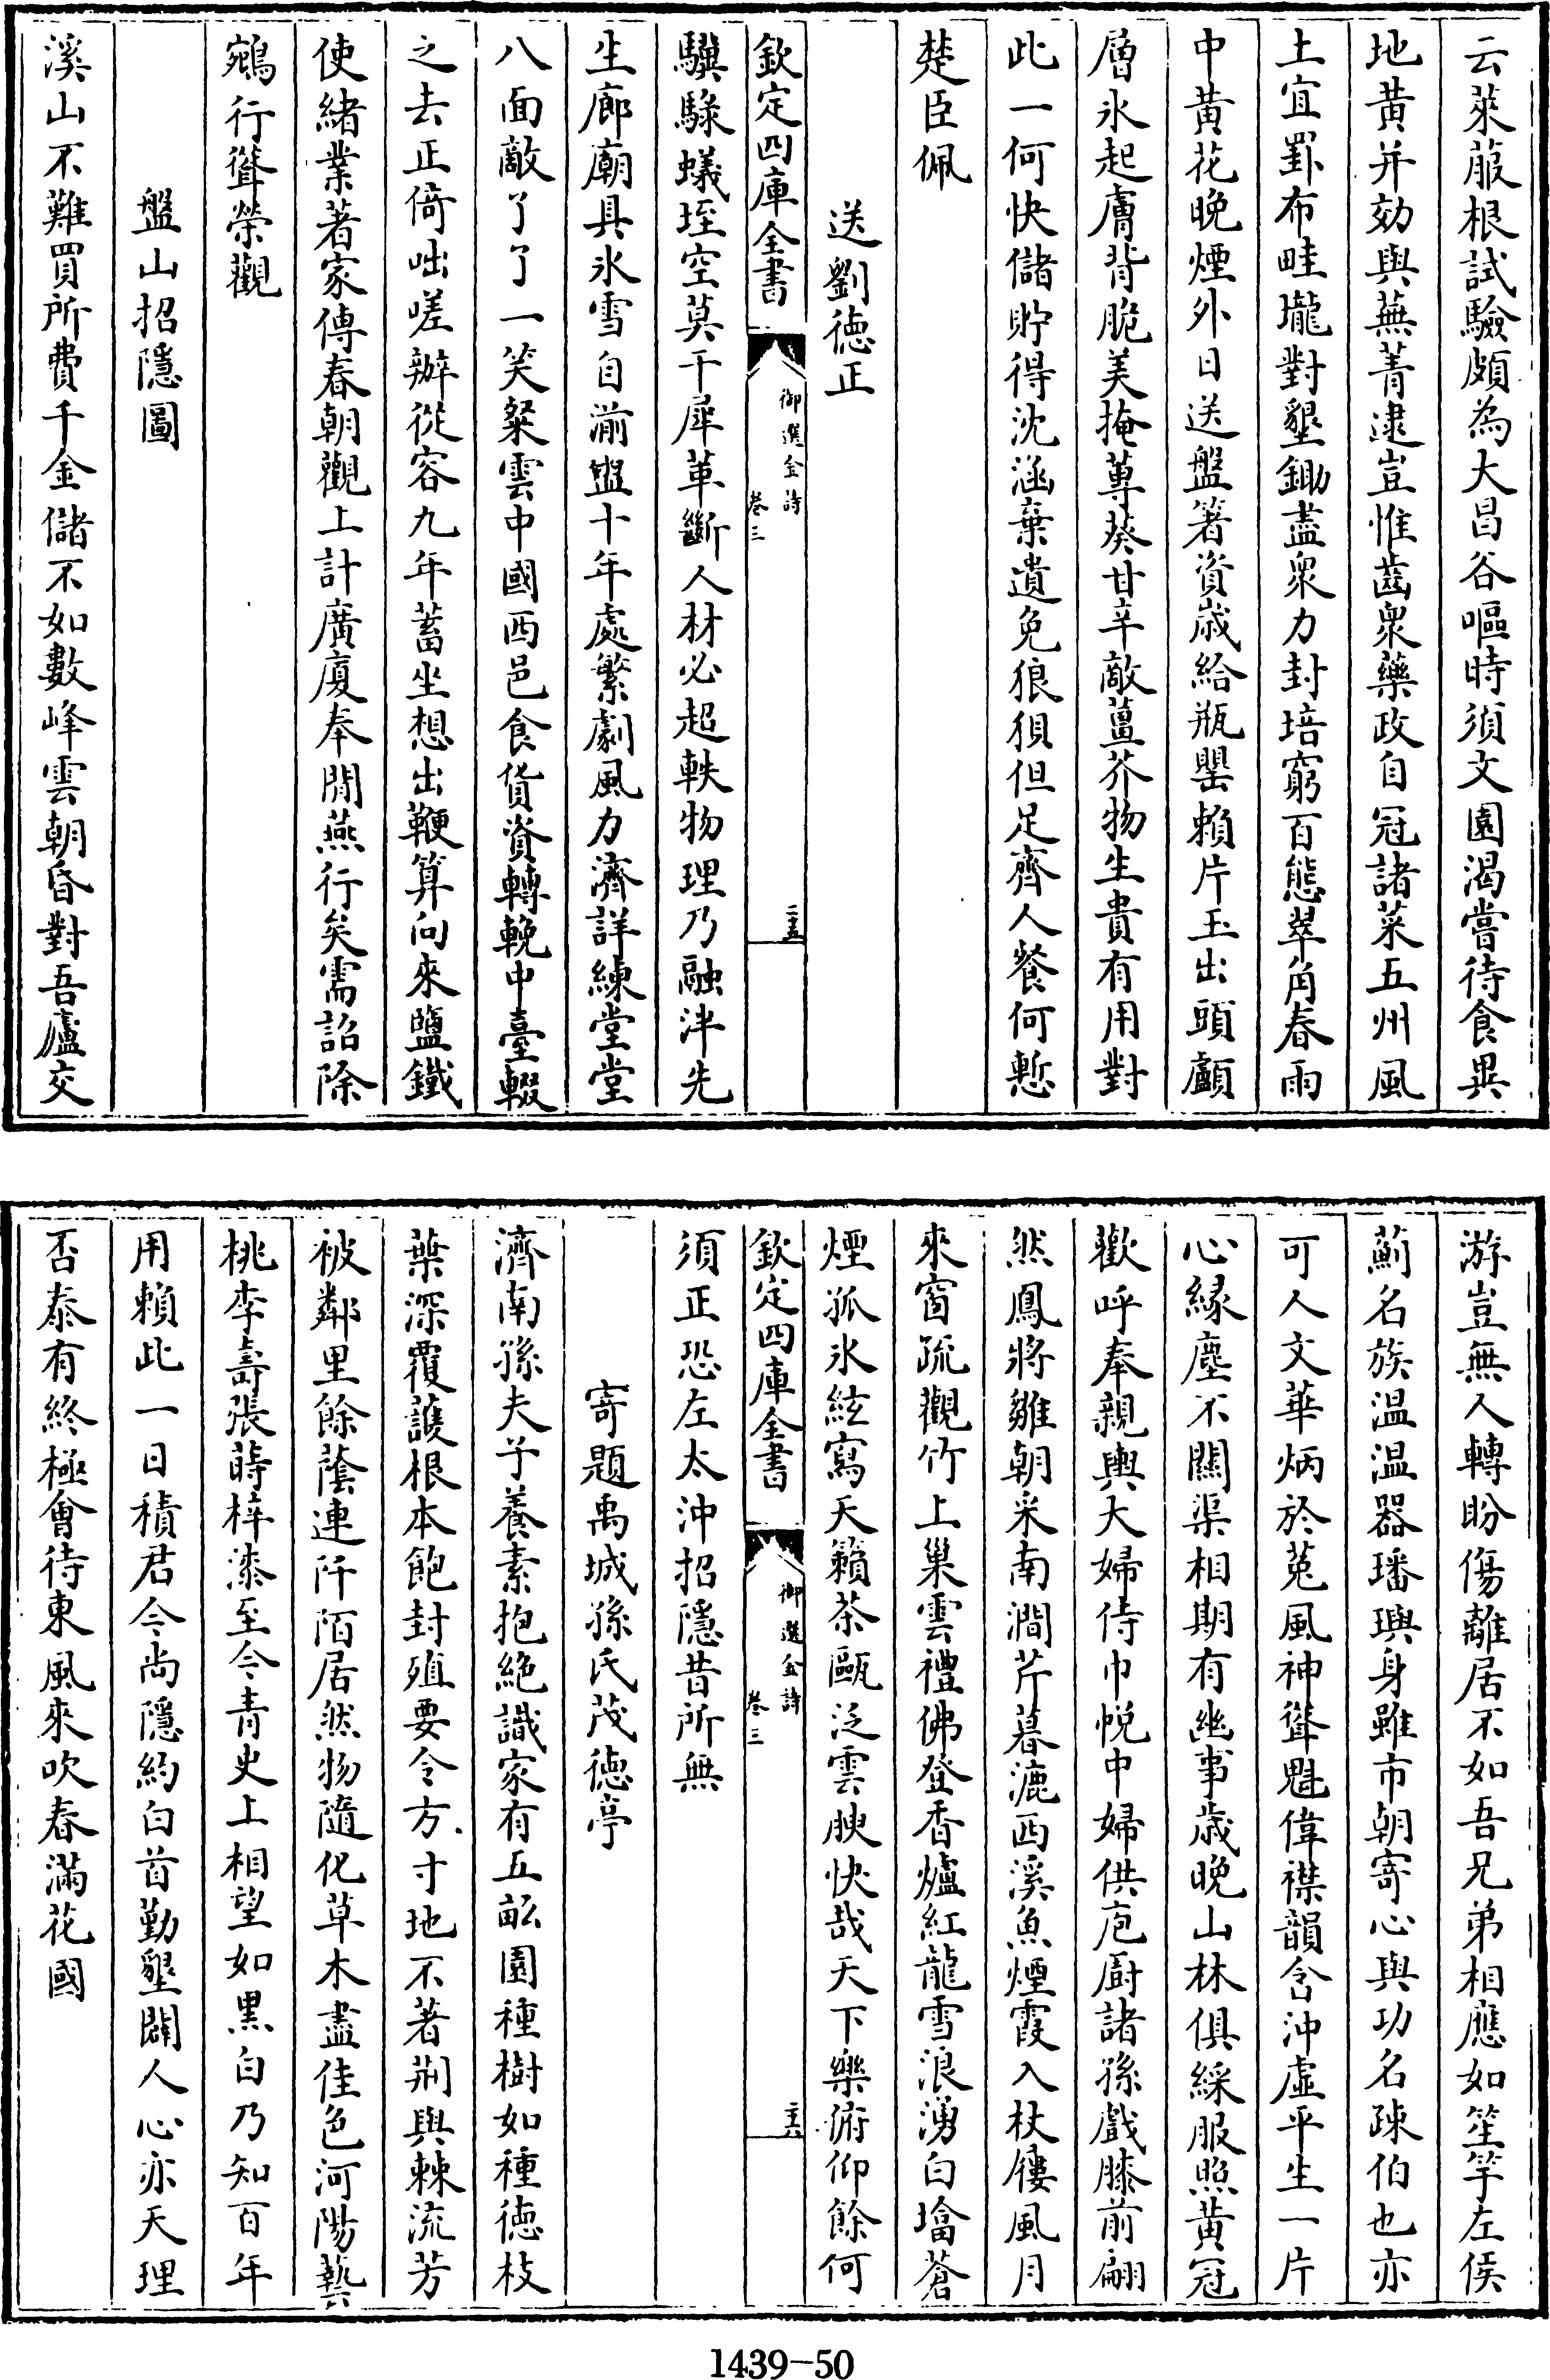 云萊菔根試驗頗為大昌谷嘔時須文園渴嘗待食異
地黃并効與蕪菁逮豈惟齒衆藥政自冠諸菜五州風
土宜罫布畦壠對墾鋤盡衆力封培窮百態翠角春雨
中黃花晚煙外日送盤箸資歲給瓶罌賴片玉出頭顱
層氷起膚背脆美掩蓴葵甘辛敵薑芥物生貴有用對
此一何快儲貯得沈涵棄遺免狼狽但足齊人餐何慙
楚臣佩
送劉徳正
欽定四庫全書
御選金詩
卷三
二十五
驥騄蟻垤空莫干犀革斷人材必超軼物理乃融泮先
生廊廟具氷雪自湔盥十年處繁劇風力濟詳練堂堂
八面敵了了一笑粲雲中國西邑食貨資轉輓中臺輟
之去正倚咄嗟辦從容九年蓄坐想出鞭算向來鹽鐵
使緒業著家傳春朝觀上計廣廈奉閒燕行矣需詔除
鵷行聳榮觀
盤山招隱圖
溪山不難買所費千金儲不如數峰雲朝昏對吾廬交
游豈無人轉盼傷離居不如吾兄弟相應如笙竽左侯
薊名族温温器璠璵身雖市朝寄心與功名疎伯也亦
可人文華炳於菟風神聳魁偉襟韻含沖虛平生一片
心緣塵不關渠相期有幽事歲晚山林俱綵服照黃冠
歡呼奉親輿大婦侍巾帨中婦供庖廚諸孫戲膝前翩
然鳳將雛朝采南澗芹暮漉西溪魚煙霞入杖屨風月
來窗疏觀竹上巢雲禮佛登香爐紅龍雪浪湧白㙮蒼
煙孤氷絃寫天籟茶甌泛雲腴快哉天下樂俯仰餘何
欽定四庫全書
御選金詩
卷三
二十六
須正恐左太沖招隱昔所無
寄題禹城孫氏茂徳亭
濟南孫夫子養素抱絶識家有五畝園種樹如種徳枝
葉深覆護根本飽封殖要令方寸地不著荆與棘流芳
被鄰里餘蔭連阡陌居然物隨化草木盡佳色河陽藝
桃李壽張蒔梓漆至今青史上相望如黑白乃知百年
用賴此一日積君今尚隱約白首勤墾闢人心亦天理
否泰有終極會待東風來吹春滿花國
1439-50